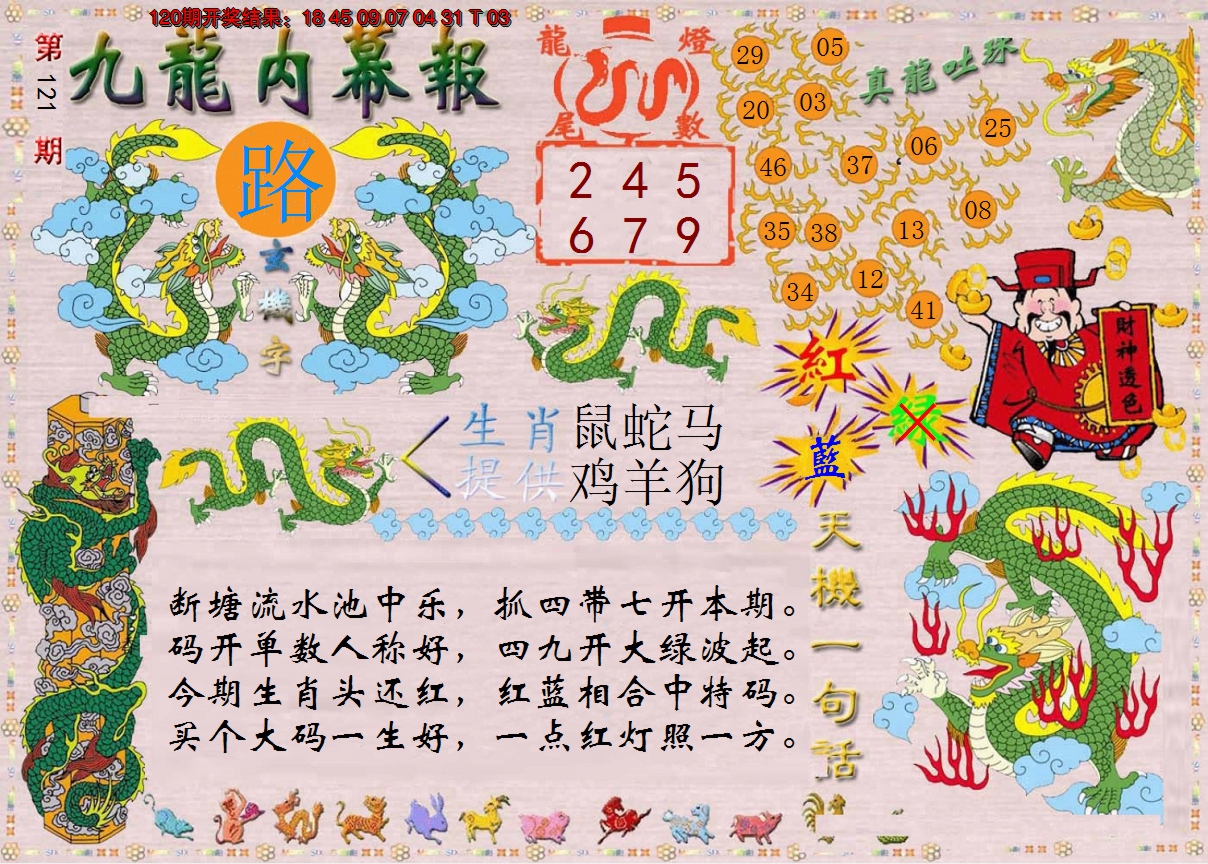 120期开奖结果：18 45 09 07 04 31 T 03
第121期
九龍内幕報
路
玄機字
龍燈尾數
2 4 5
6 7 9
真龍吐珠
29 05
20 03
46 37 06 25
35 38 13 08
34 12 41
財神透色
紅
绿
藍
生肖提供
鼠蛇马
鸡羊狗
天機一句話
断塘流水池中乐，抓四带七开本期。
码开单数人称好，四九开大绿波起。
今期生肖头还红，红蓝相合中特码。
买个大码一生好，一点红灯照一方。